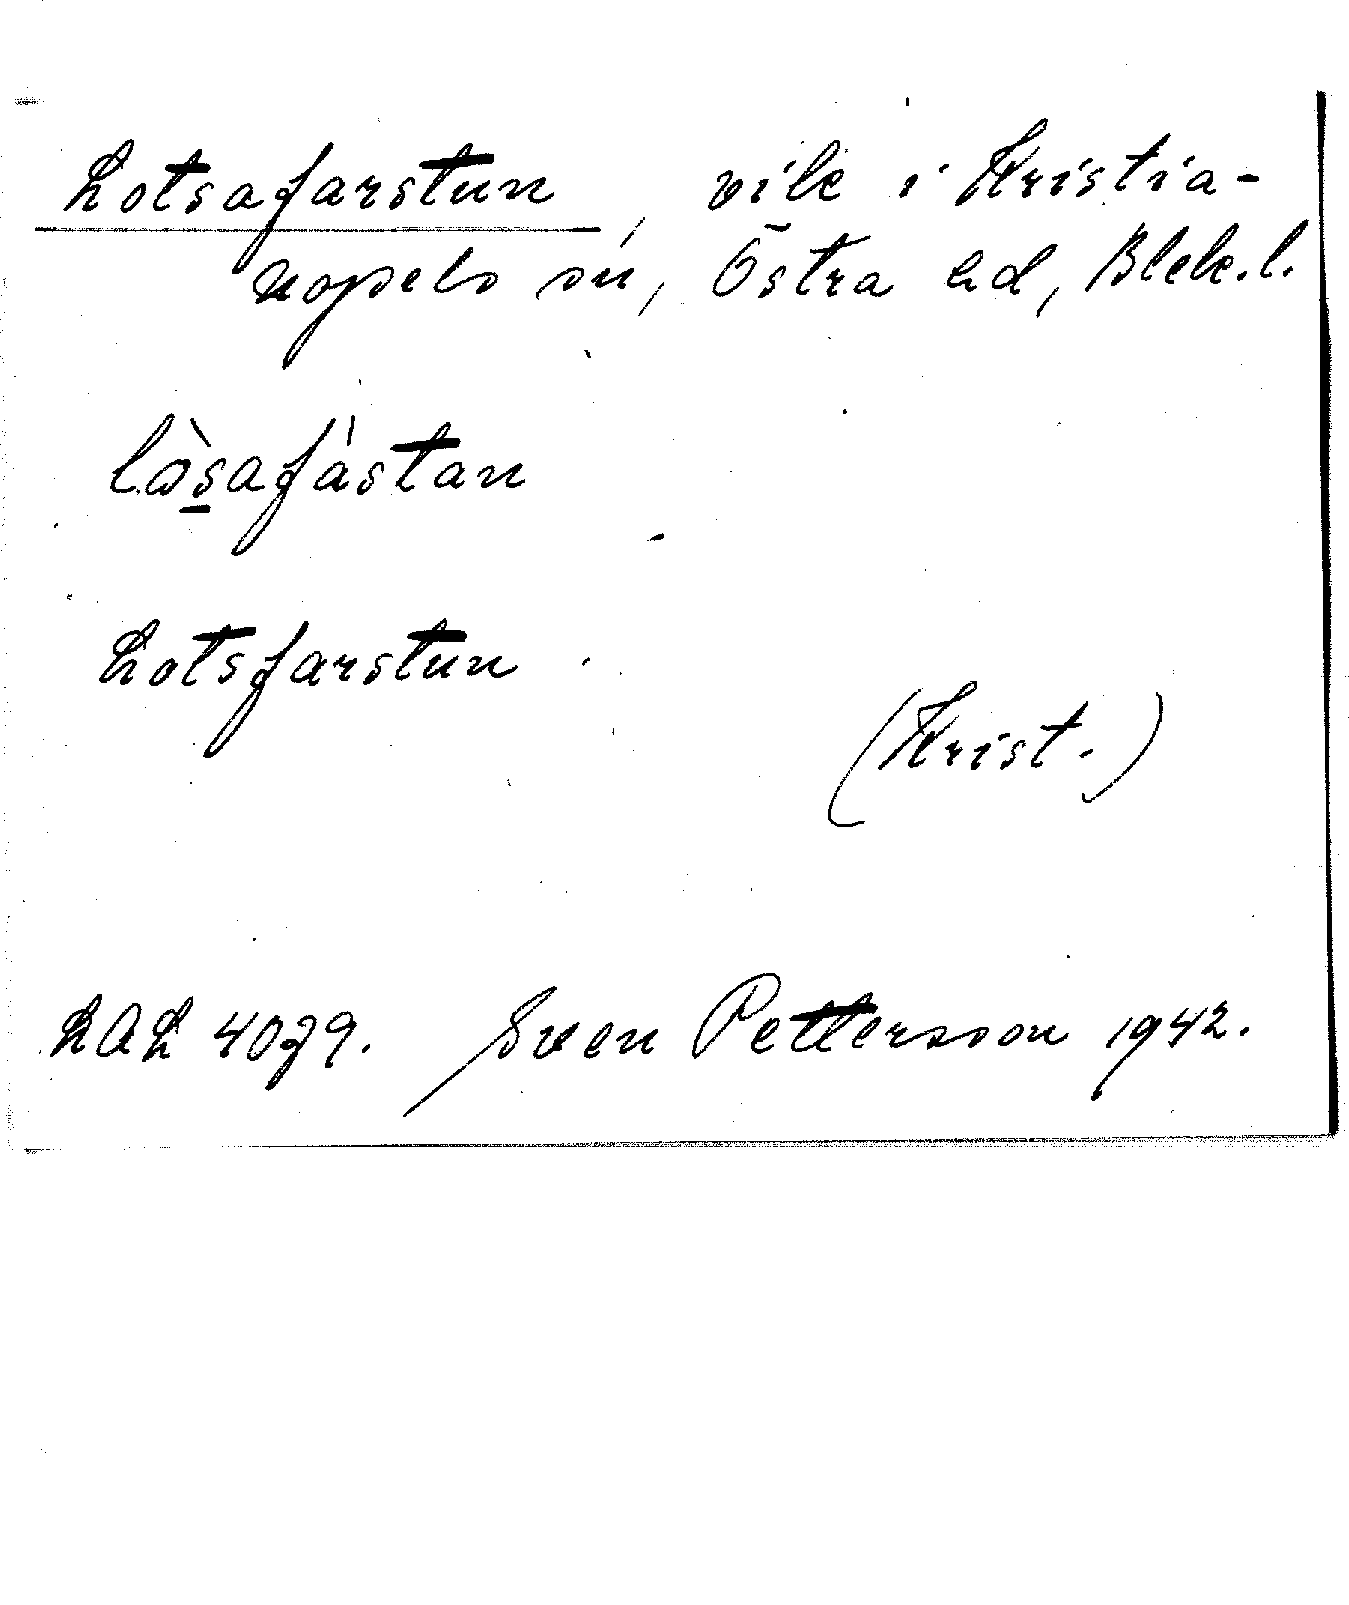 Lotsafarstun, vik i Kristia-
nopels sn, Östra hd, Blek.l.
lòs̠afàstan
Lotsfarstun
(Krist.)
LAL 4079. Sven Pettersson 1942.